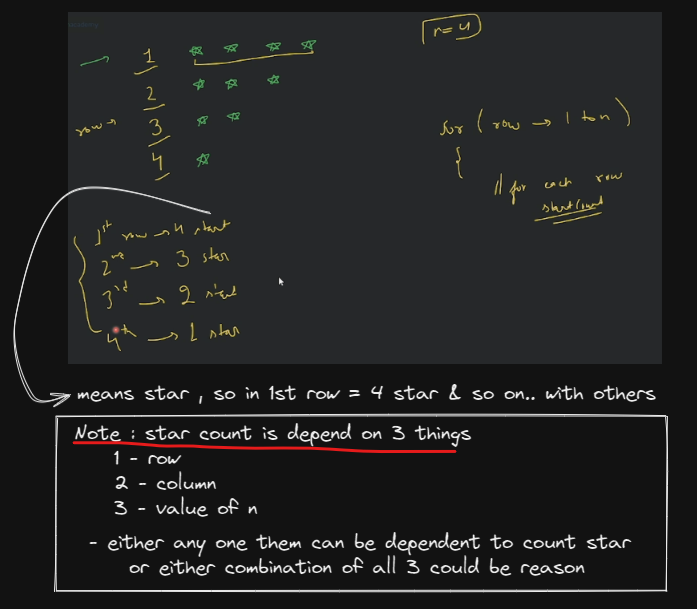 r=4
1
2
row → 3
4
for ( row → 1 to n )
{
// for each row
start count
1st row → 4 start
2nd → 3 star
3rd → 2 start
4th → 1 star
means star , so in 1st row = 4 star & so on.. with others
Note : star count is depend on 3 things
1 - row
2 - column
3 - value of n
- either any one them can be dependent to count star
or either combination of all 3 could be reason